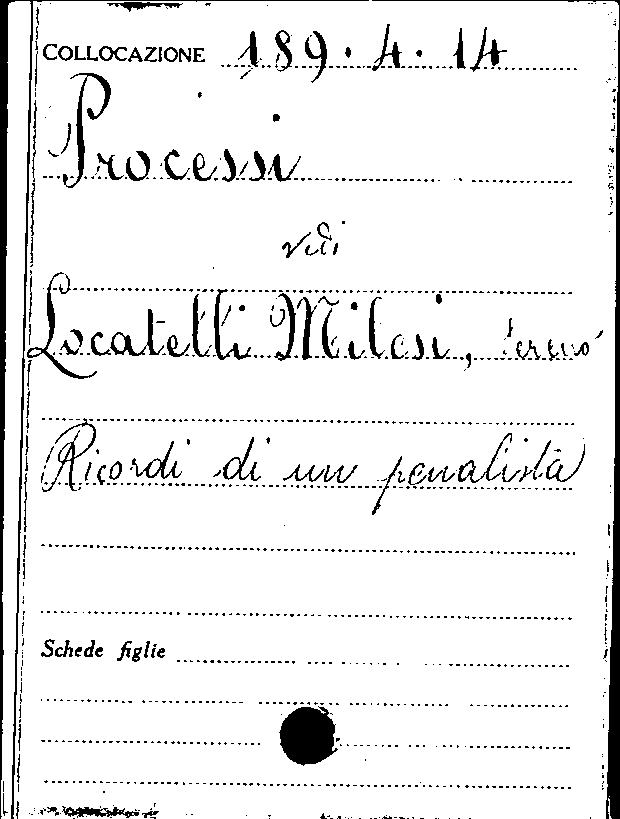 COLLOCAZIONE 189.4.14
Processi
vedi
Locatelli Milesi, Sereno
Ricordi di un penalista
Schede figlie